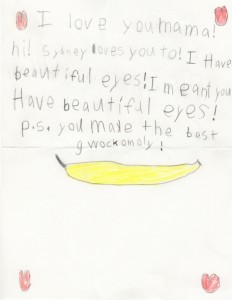 I love you mama!
hi! Sydney loves you to! I Have
beautiful eyes! I meant you
Have beautiful eyes!
p.s. you make the best
gwockomoly!